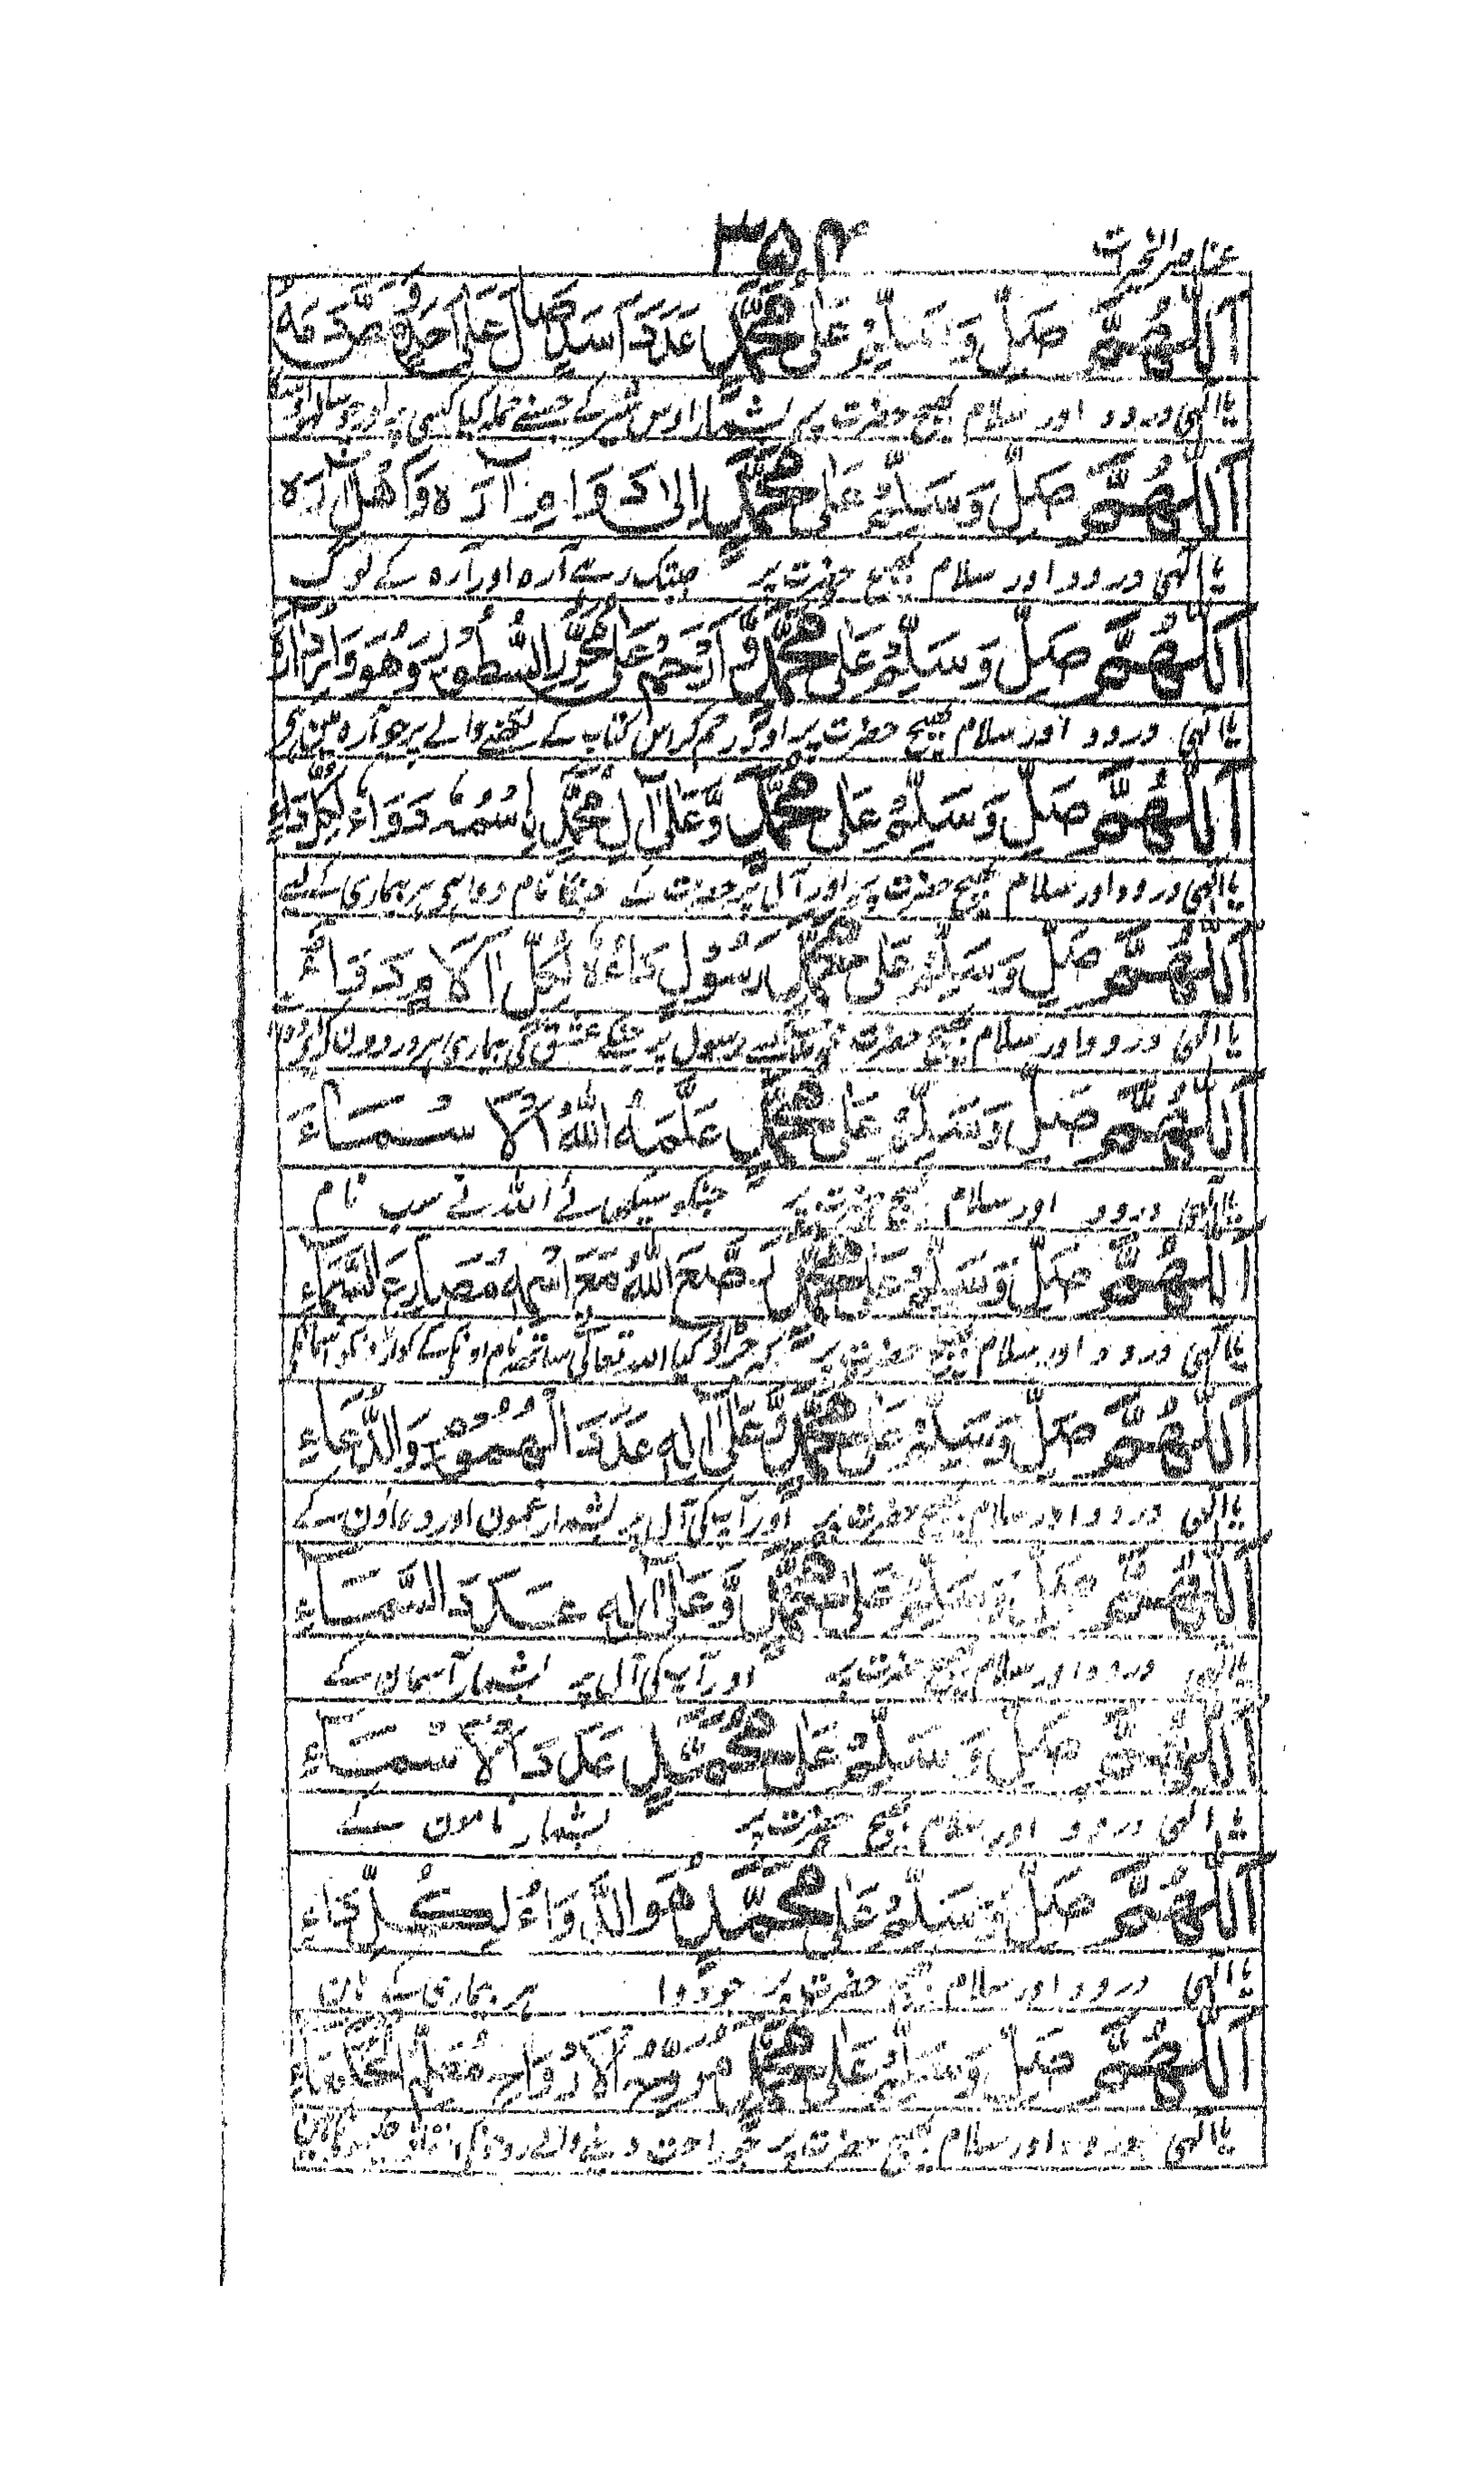 ۳۵۴
اَللّٰهُمَّ صَلِّ وَسَلِّمْ عَلٰى مُحَمَّدٍ عَدَدَ اَسَدٍ صَالَ عَلٰى اَحَدٍ
یا الٰہی درود اور سلام بھیج حضرت پر بشمار اوس شیر کے جسنے حملہ کیا کسی پر اور
اَللّٰهُمَّ صَلِّ وَسَلِّمْ عَلٰى مُحَمَّدٍ اِلٰى دَوَامِ آرَه وَاَهْلِ آرَه
یا الٰہی درود اور سلام بھیج حضرت پر جبتک رہے آرہ اور آرہ کے لوگ
اَللّٰهُمَّ صَلِّ وَسَلِّمْ عَلٰى مُحَمَّدٍ وَّارْحَمْ عَلٰى مُحَرِّرِ السُّطُوْرِ وَهُوَ
یا الٰہی درود اور سلام بھیج حضرت پر اور رحم کر اس کتاب کے لکھنے والے پر جو آرہ مین ہی
اَللّٰهُمَّ صَلِّ وَسَلِّمْ عَلٰى مُحَمَّدٍ وَّعَلٰى آلِ مُحَمَّدٍ اِسْمُهٗ دَوَاءٌ لِكُلِّ دَاءٍ
یا الٰہی درود اور سلام بھیج حضرت پر اور آل پر حضرت کے جنکا نام دوا ہی ہر بیماری کے لیے
اَللّٰهُمَّ صَلِّ وَسَلِّمْ عَلٰى مُحَمَّدٍ رَسُوْلٍ دَاءُهٗ لِكُلِّ الْاٰلَامِ دَوَاءٌ
یا الٰہی درود اور سلام بھیج حضرت رسول پر جنکے عشق کی بیماری ہر دردون کی دوا
اَللّٰهُمَّ صَلِّ وَسَلِّمْ عَلٰى مُحَمَّدٍ عَلَّمَهُ اللّٰهُ الْاَسْمَاءَ
یا الٰہی درود اور سلام بھیج حضرت پر جنکو سیکھائے اللہ نے سب نام
اَللّٰهُمَّ صَلِّ وَسَلِّمْ عَلٰى مُحَمَّدٍ رَصَّعَ اللّٰهُ مَعَ اسْمِهٖ مَصَارِعَ السَّمَاءِ
یا الٰہی درود اور سلام بھیج حضرت پر کہ جڑاؤ کیا اللہ تعالٰی ساتھ نام اونکے کواڑونکو آسمان
اَللّٰهُمَّ صَلِّ وَسَلِّمْ عَلٰى مُحَمَّدٍ وَّعَلٰى اٰلِهٖ عَدَدَ الْهُمُوْمِ وَالدُّعَاءِ
یا الٰہی درود اور سلام بھیج حضرت پر اور آپ کی آل پر بشمار غمون اور دعاؤن کے
اَللّٰهُمَّ صَلِّ وَسَلِّمْ عَلٰى مُحَمَّدٍ وَّعَلٰى اٰلِهٖ عَدَدَ السَّمَاءِ
یا الٰہی درود اور سلام بھیج حضرت پر اور آپ کی آل پر بشمار آسمان کے
اَللّٰهُمَّ صَلِّ وَسَلِّمْ عَلٰى مُحَمَّدٍ عَدَدَ الْاَسْمَاءِ
یا الٰہی درود اور سلام بھیج حضرت پر بشمار نامون کے
اَللّٰهُمَّ صَلِّ وَسَلِّمْ عَلٰى مُحَمَّدٍ هُوَ الدَّوَاءُ لِكُلِّ دَاءٍ
یا الٰہی درود اور سلام بھیج حضرت پر جو دوا ہر بیماری کے
اَللّٰهُمَّ صَلِّ وَسَلِّمْ عَلٰى مُحَمَّدٍ مُرَوِّحِ الْاَرْوَاحِ مُعَلِّمِ
یا الٰہی درود اور سلام بھیج حضرت پر جو راحت دینے والے